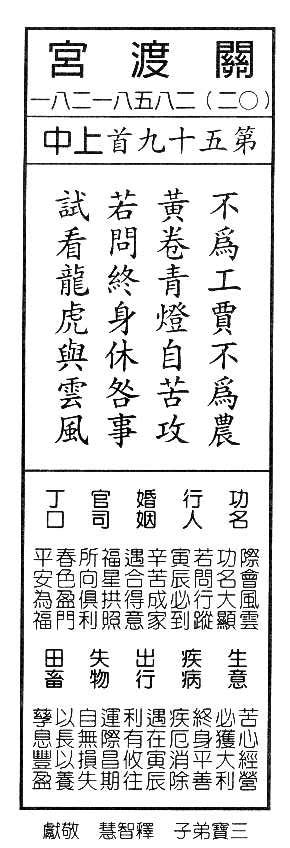 關渡宮
(〇二)二八五八一二八一
第五十九首上中
不為工賈不為農
黃卷青燈自苦攻
若問終身休咎事
試看龍虎與雲風
功名
際會風雲
功名大顯
行人
若問行蹤
寅辰必到
婚姻
辛苦成家
遇合得意
官司
福星拱照
所向俱利
丁口
春色盈門
平安為福
生意
苦心經營
必獲大利
疾病
終身平善
疾厄消除
出行
遇在寅辰
利有攸往
失物
運際昌期
自無損失
田畜
以長以養
孳息豐盈
三寶弟子 釋智慧 敬獻